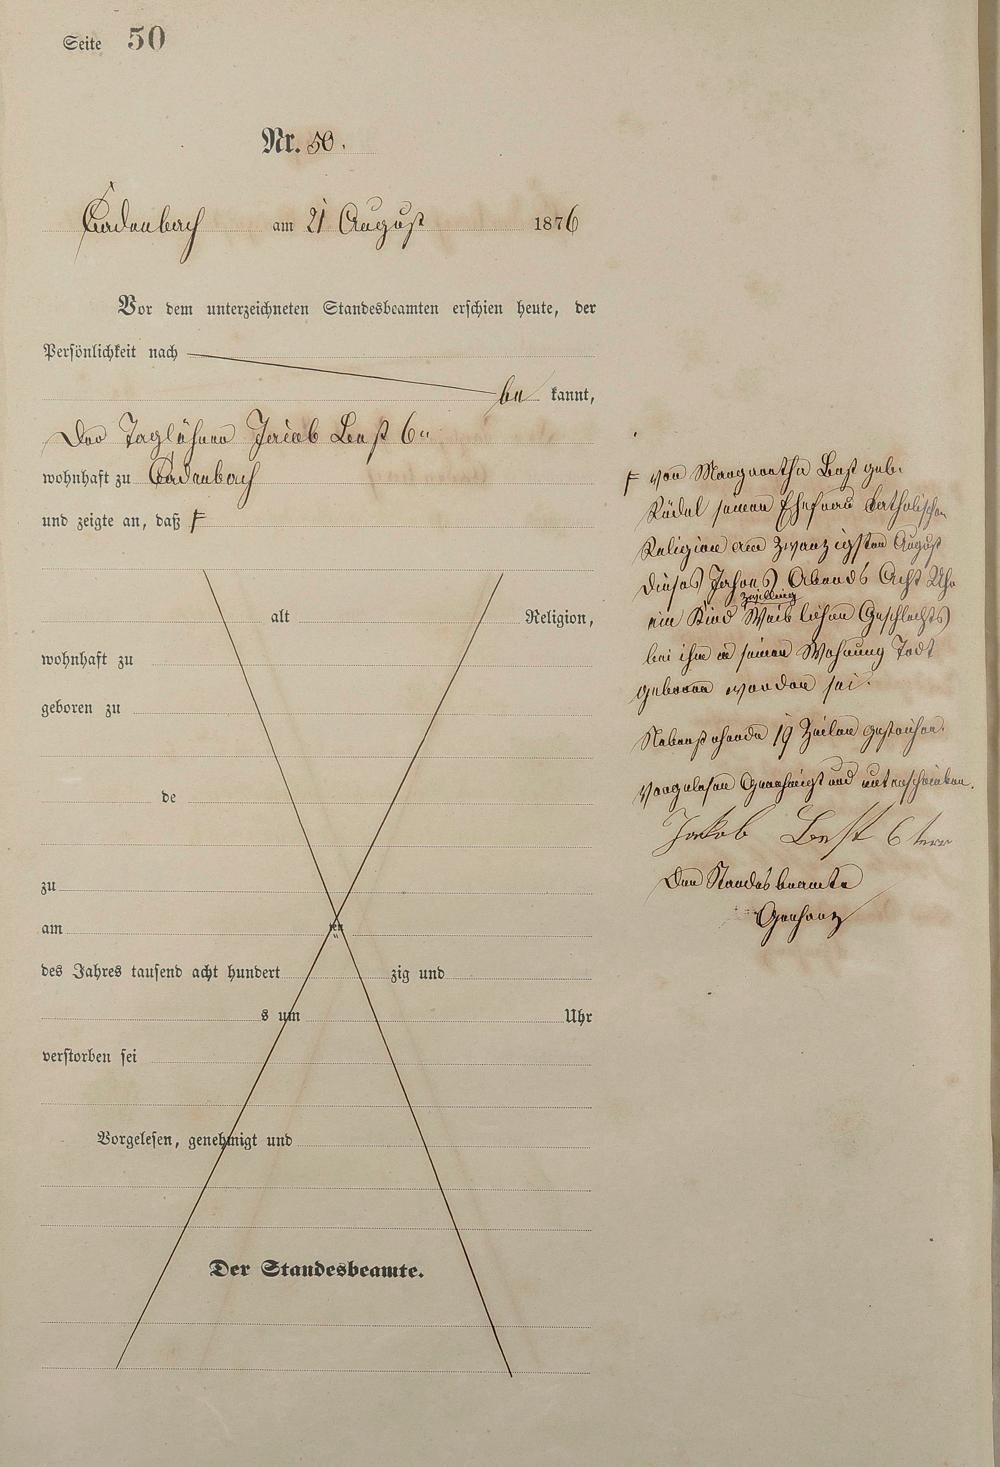 Seite 50
Nr. 50.
Cadenbach am 21 August 1876
Vor dem unterzeichneten Standesbeamten erschien heute, der
Persönlichkeit nach
be kannt,
Der Taglöhner Jacob Best 6"
wohnhaft zu Cadenbach
und zeigte an, daß F
alt Religion,
wohnhaft zu
geboren zu
de
zu
am ten
des Jahres tausend acht hundert zig und
s um Uhr
verstorben sei
Vorgelesen, genehmigt und
Der Standesbeamte.
F von Margaretha Best geb.
seiner Ehefrau Katholischen
Religion am zwanzigsten August
dieses Jahres Abends Acht Uhr
zwilling
ein Kind Weiblichen Geschlechts
bei ihm in seiner Wohnung Todt
geboren worden sei.
Nebenstehende 19 Zeilen gestrichen.
Vorgelesen Genehmigt und unterschrieben.
Jakob Best 6ter
Der Standesbeamte